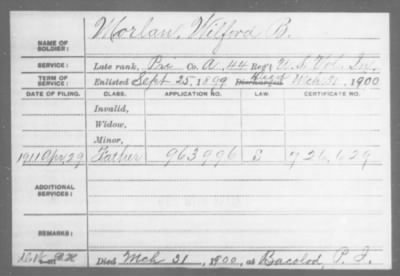 Morlan, Wilford B.
NAME OF SOLDIER:
SERVICE: Late rank, Pri Co. A, 44 Reg't U.S. Vol. Inf.
TERM OF SERVICE: Enlisted Sept 25, 1899 Died Discharged Mch 31, 1900
DATE OF FILING. CLASS. APPLICATION NO. LAW. CERTIFICATE NO.
Invalid,
Widow,
Minor,
1911 Apr 29 Father 963996 S 726,629
ADDITIONAL SERVICES:
REMARKS:
Died Mch 31, 1900, at Bacolod, P. I.